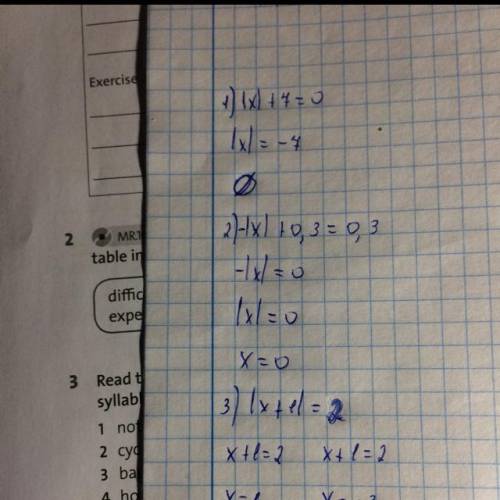 Exercise
2 MR1
table in
diffic
expe
3 Read t
syllab
1 no
2 cyc
3 ba
4 ho
1) |x| + 7 = 0
|x| = -7
∅
2) -|x| + 0,3 = 0,3
-|x| = 0
|x| = 0
x = 0
3) |x + 1| = 2
x + 1 = 2 x + 1 = 2